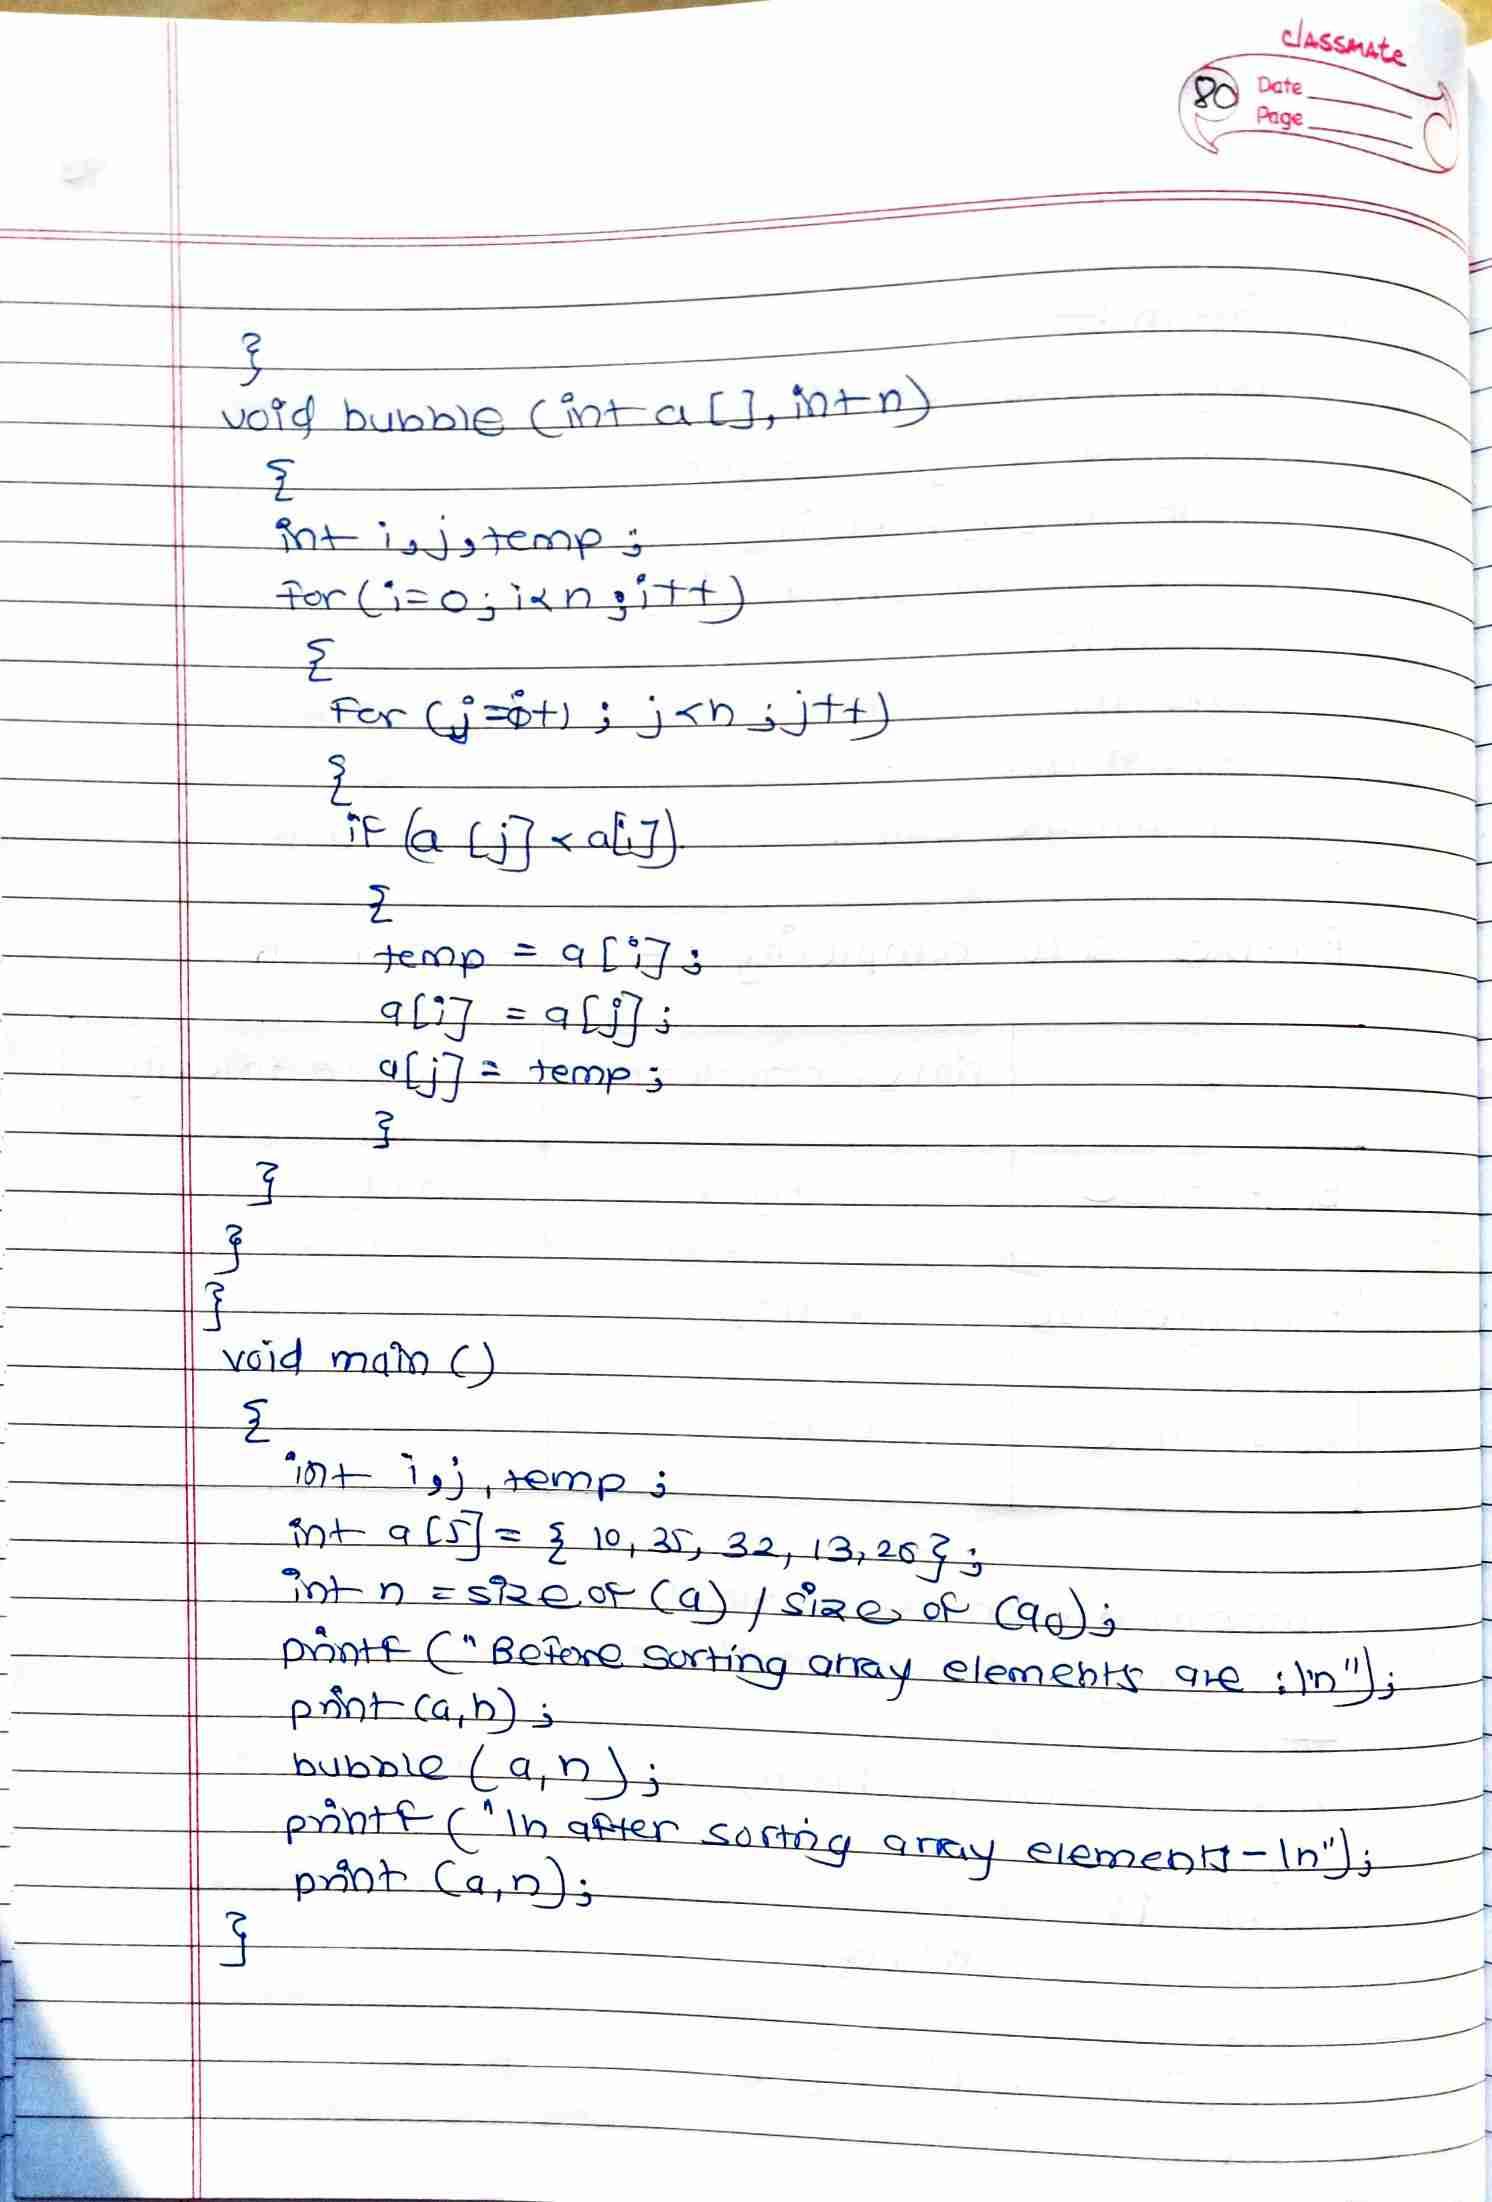 classmate
80
Date
Page
}
void bubble (int a [], int n)
{
int i,j,temp;
for(i=0; i<n; i++)
{
for (j=i+1; j<n; j++)
{
if (a [j] < a[i])
{
temp = a[i];
a[i] = a[j];
a[j] = temp;
}
}
}
}
void main ()
{
int i,j, temp;
int a[5] = { 10, 35, 32, 13, 26};
int n = size of (a) / size of (a0);
printf (" Before sorting array elements are :\n");
print (a,n);
bubble (a,n);
printf ("\n after sorting array elements - \n");
print (a,n);
}